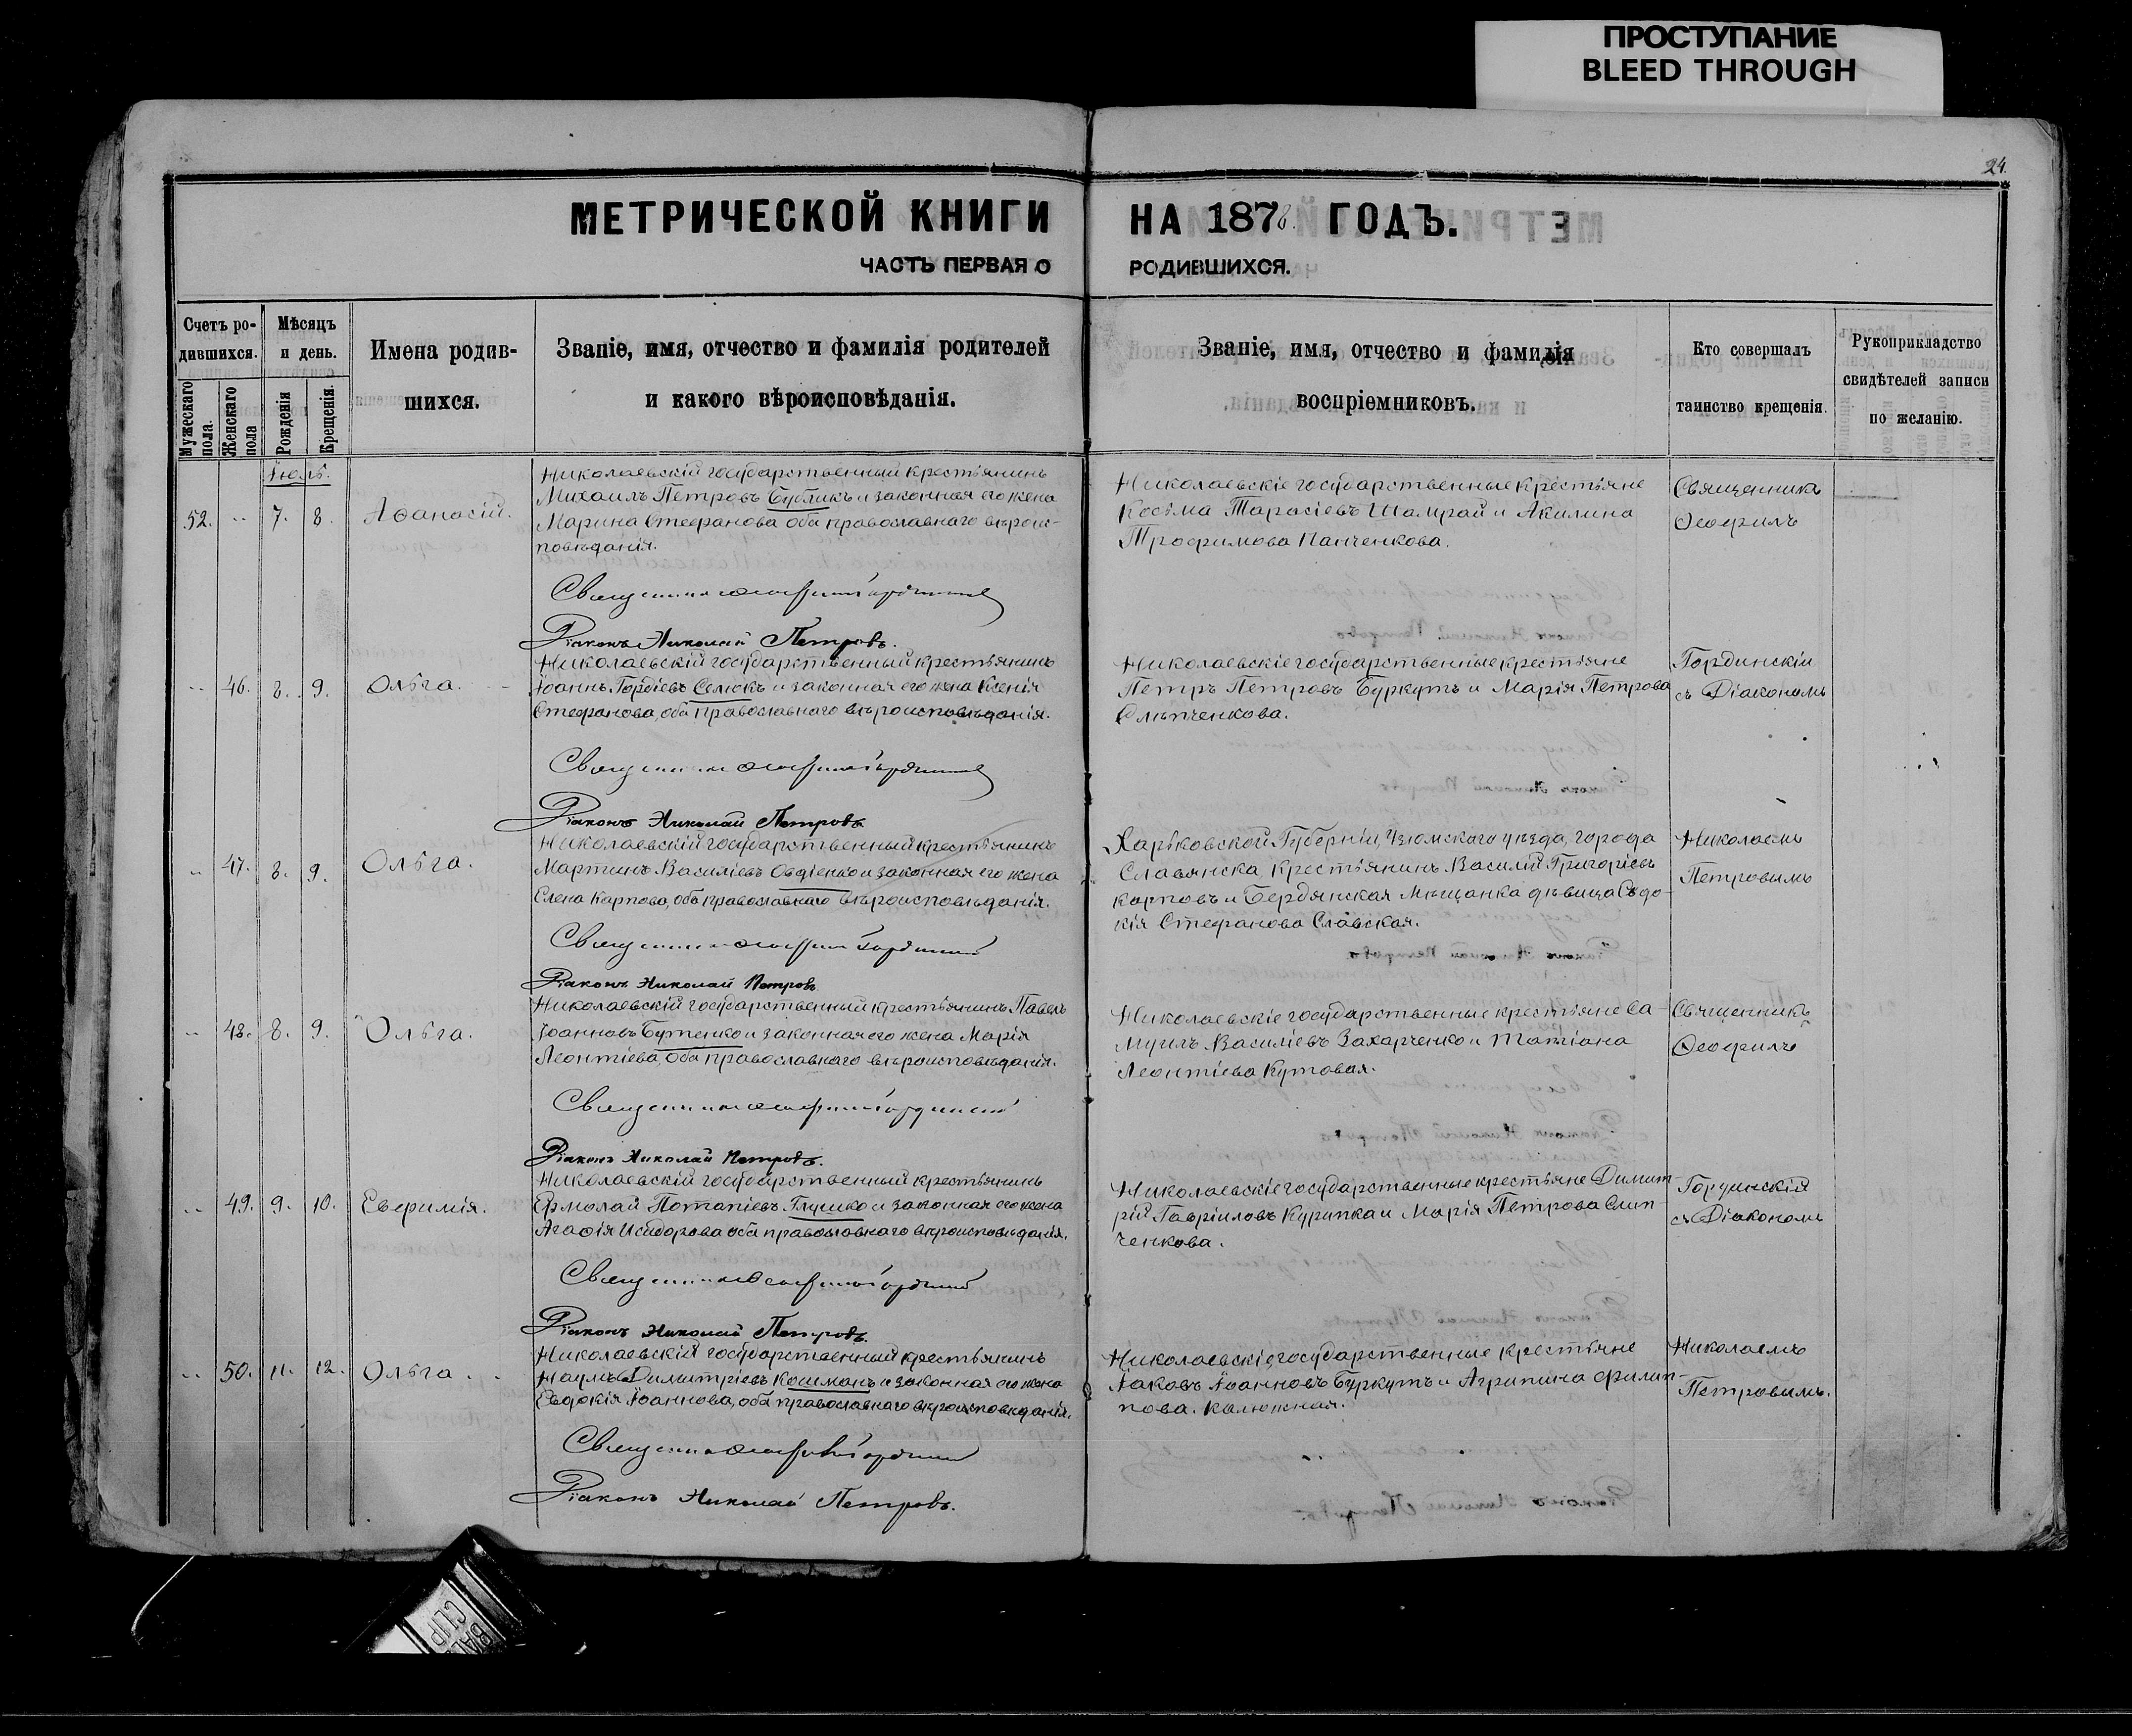 ПРОСТУПАНИЕ
BLEED THROUGH
24.
МЕТРИЧЕСКОЙ КНИГИ НА 1878. ГОДЪ.
ЧАСТЬ ПЕРВАЯ О РОДИВШИХСЯ.
Счетъ ро-
дившихся.
Мужескаго пола.
Женскаго пола
Мѣсяцъ
и день.
Рожденія
Крещенія.
Имена родив-
шихся.
Званіе, имя, отчество и фамилія родителей
и какого вѣроисповѣданія.
Званіе, имя, отчество и фамилія
воспріемниковъ.
Кто совершалъ
таинство крещенія.
Рукоприкладство
свидѣтелей записи
по желанію.
Іюль.
52. 7. 8. Аѳанасій.
Николаевскій государственный крестьянинъ
Михаилъ Петровъ Бубликъ и законная его жена
Марина Стефанова оба православнаго вѣроис-
повѣданія.
Николаевскіе государственные крестьяне
Косьма Тарасіевъ Шамрай и Акилина
Трофимова Панченкова.
Священникъ
Ѳеофилъ
Діаконъ Николай Петровъ.
46. 8. 9. Ольга.
Николаевскій государственный крестьянинъ
Іоаннъ Гордіевъ Селюкъ и законная его жена Ксенія
Стефанова, оба православнаго вѣроисповѣданія.
Николаевскіе государственные крестьяне
Петръ Петровъ Буркутъ и Марія Петрова
Слѣпченкова.
Гординскій
съ Діакономъ
Діаконъ Николай Петровъ
47. 8. 9. Ольга.
Николаевскій государственный крестьянинъ
Мартинъ Василіевъ Овдіенко и законная его жена
Елена Карпова, оба православнаго вѣроисповѣданія.
Харьковской Губерніи, Изюмскаго уѣзда, города
Славянска, крестьянинъ Василій Григоріевъ
Карповъ и Бердянская Мѣщанка дѣвица Евдо-
кія Стефанова Славская.
Николаемъ
Петровымъ
Діаконъ Николай Петровъ
48. 8. 9. Ольга.
Николаевскій государственный крестьянинъ Павелъ
Іоанновъ Бутенко и законная его жена Марія
Леонтіева, оба православнаго вѣроисповѣданія.
Николаевскіе государственные крестьяне Са-
муилъ Василіевъ Захарченко и Татіана
Леонтіева Кутовая.
Священникъ
Ѳеофилъ
Діаконъ Николай Петровъ.
49. 9. 10. Евфимія.
Николаевскій государственный крестьянинъ
Ермолай Потапіевъ Глушко и законная его жена
Агафія Исидорова оба православнаго вѣроисповѣданія.
Николаевскіе государственные крестьяне Димит-
рій Гавріиловъ Курипка и Марія Петрова Слип
ченкова.
Гординскій
съ Діакономъ
Діаконъ Николай Петровъ.
50. 11. 12. Ольга.
Николаевскій государственный крестьянинъ
Наумъ Димитріевъ Кошманъ и законная его жена
Евдокія Іоаннова, оба православнаго вѣроисповѣданія.
Николаевскіе государственные крестьяне
Іаковъ Іоанновъ Буркутъ и Агрипина Филип-
пова Калюжная.
Николаемъ
Петровымъ.
Діаконъ Николай Петровъ.